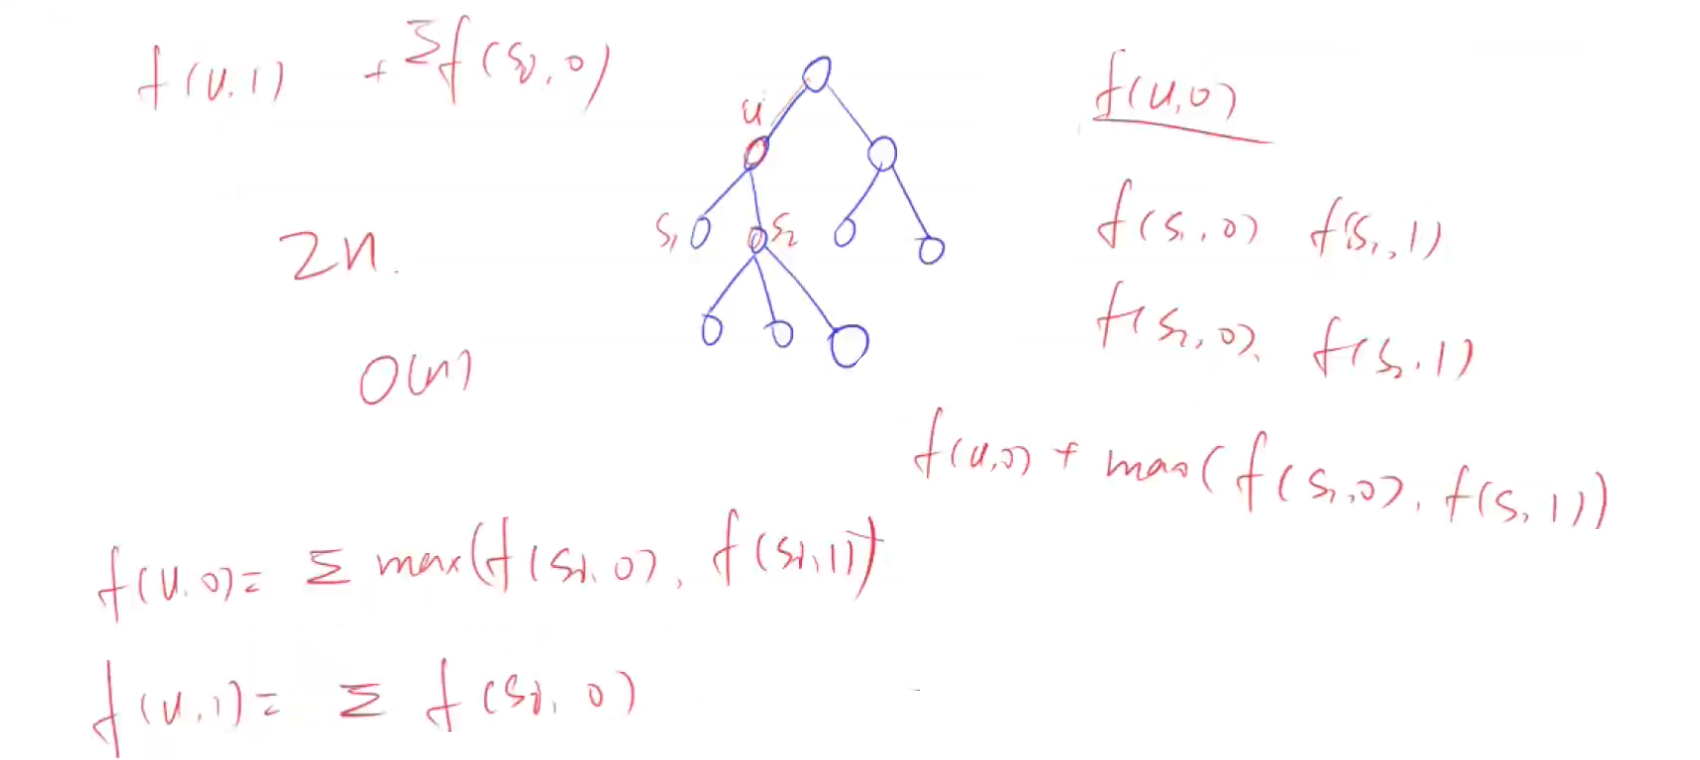 f(u,1) + Σf(si,0)
u
f(u,0)
s1 s2
f(s1,0) f(s1,1)
2n.
f(s2,0), f(s2,1)
O(n)
f(u,0) + max(f(s1,0), f(s1,1))
f(u,0)= Σ max(f(si,0), f(si,1))
f(u,1)= Σ f(si,0)